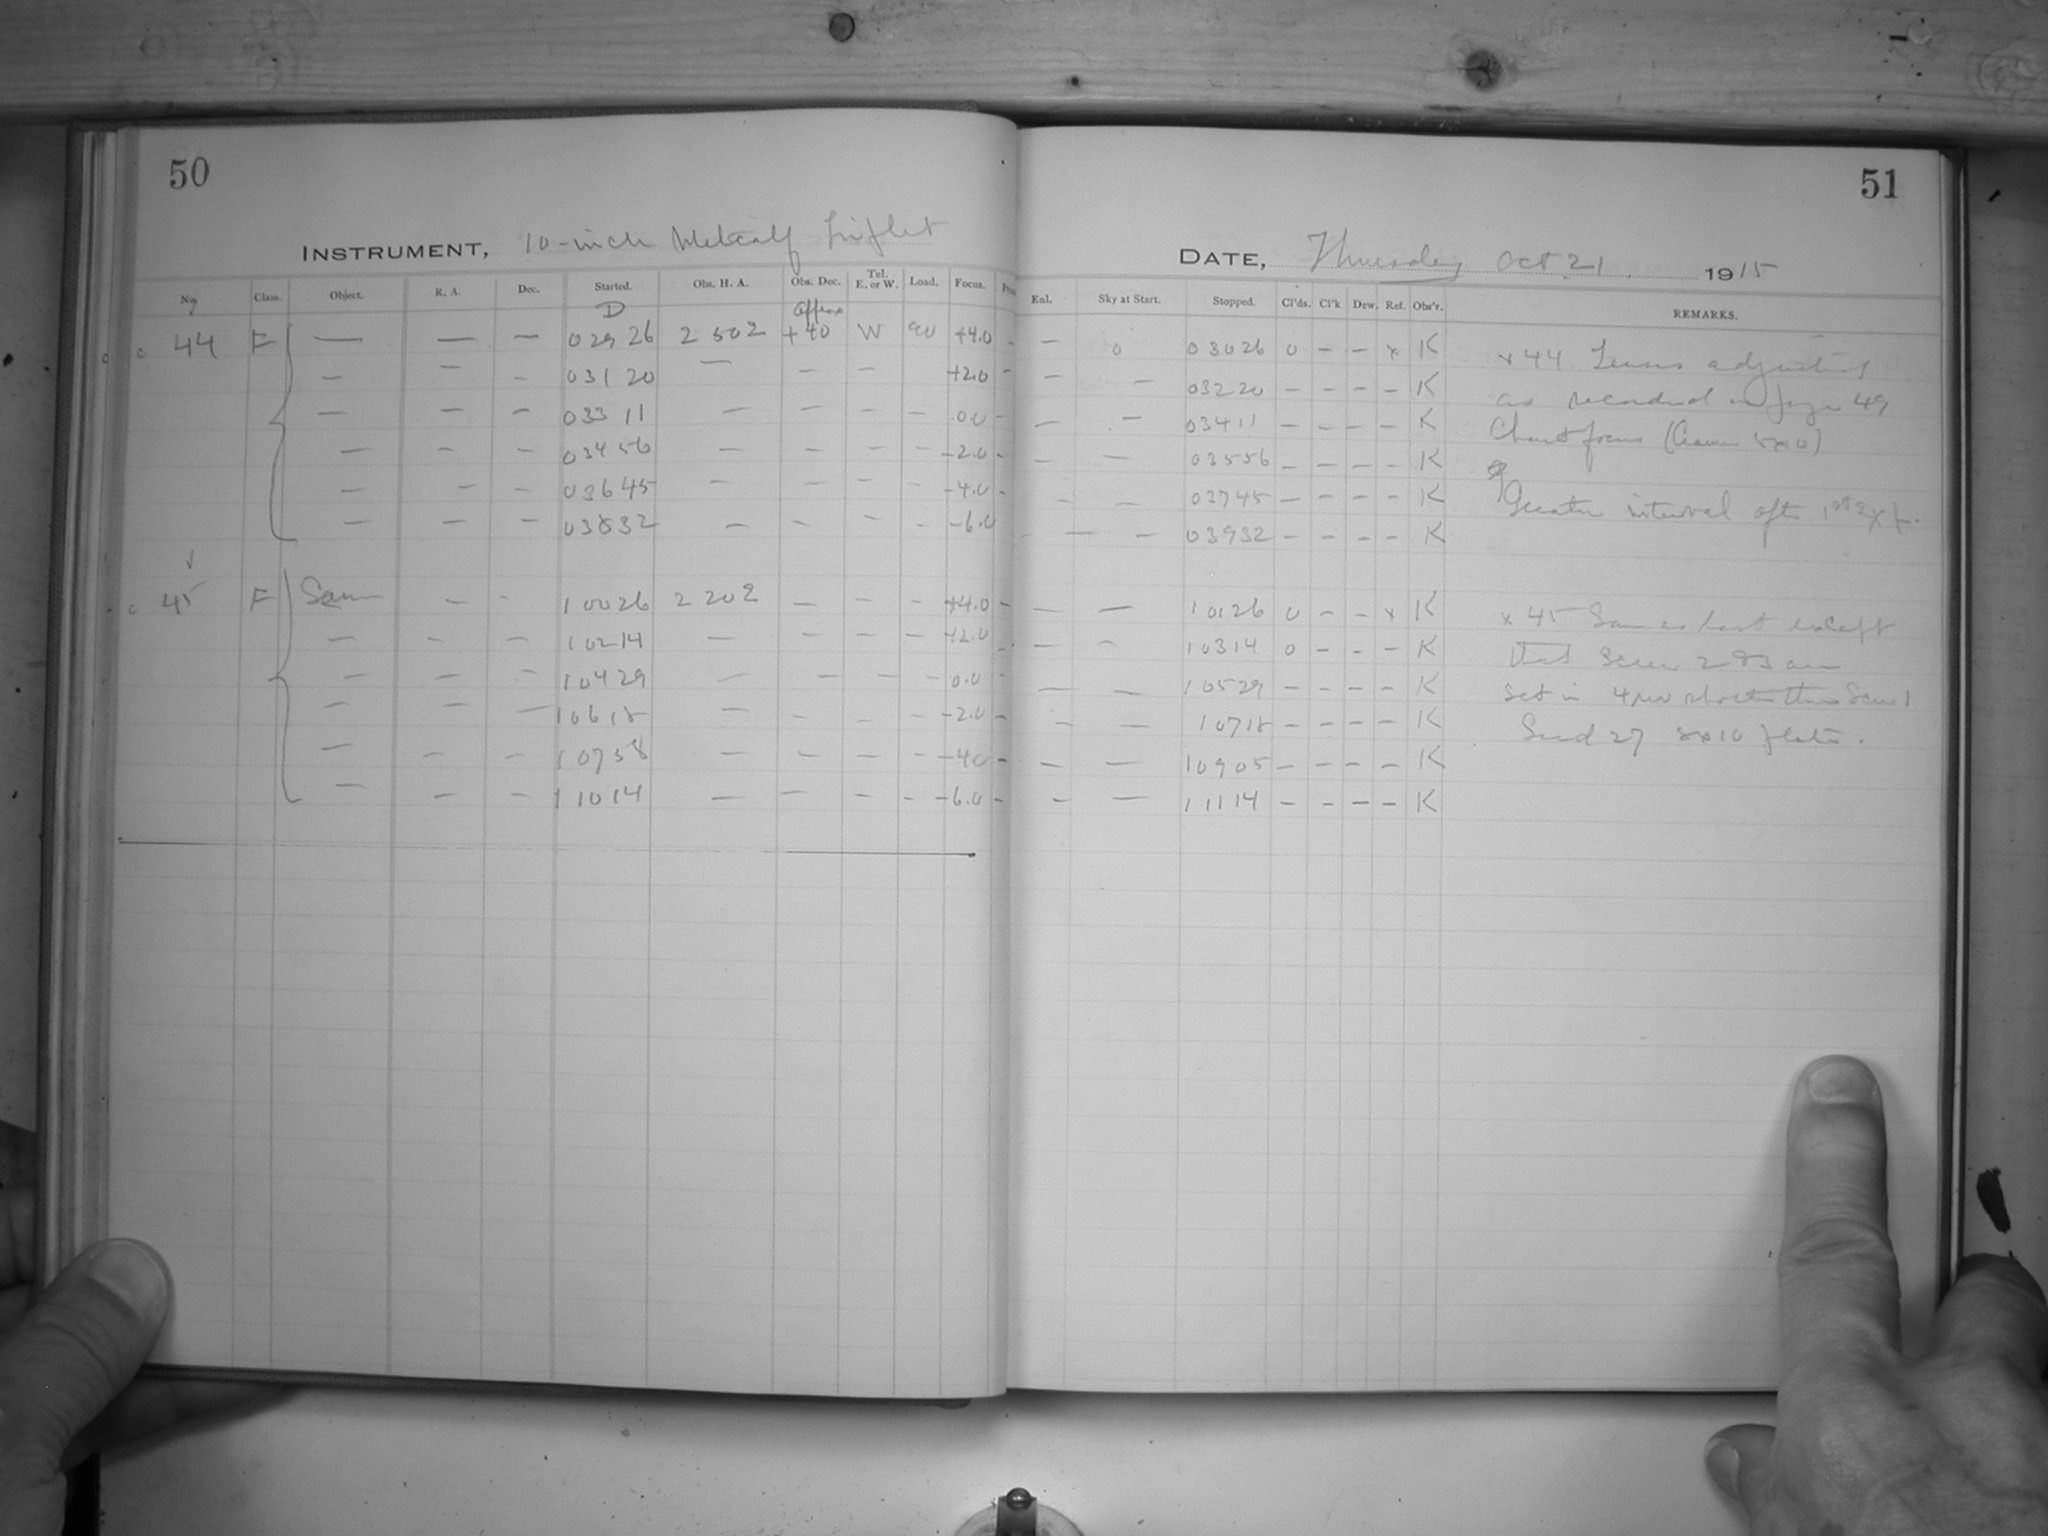 50
INSTRUMENT, 10-inch Metcalf Triplet
No. Class. Object. R. A. Dec. Started. Obs. H. A. Obs. Dec. Tel. E. or W. Load. Focus.
D approx
44 F — — — 0 29 26 2 50 2 +40 W 90 +4.0 -
— — — 03 1 20 — — — +2.0 -
— — — 033 11 — — — — 0.0 -
— — — 034 56 — — — — -2.0 -
— — — 03645 — — — — -4.0 -
— — — 03832 — — — — -6.0
45 F Same — - 1 0026 2 20 2 — — — +4.0 -
— — — 1 0214 — — — — +2.0 -
— — — 10429 — — — — 0.0 -
— — — 10618 — — — — -2.0 -
— — — 10758 — — — — -40 -
— — — 11014 — — — — -6.0 -
51
DATE, Thursday Oct 21 1915
Enl. Sky at Start. Stopped. Cl'ds. Cl'k Dew. Ref. Obs'r. REMARKS.
— 0 03026 0 - - x K x 44 Lenses
— — 03220 - - - - K as recorded on page 49
— — 03411 - - - - K focus
— — 03556 - - - - K
— — 03745 - - - - K Greater interval after 1st
— — 03932 - - - - K
— — 10126 0 - - x K x 45 Same as last except
— — 10314 0 - - - K that Screw 2 & 3 are
— — 10529 - - - - K set in 4 shorter than Screw 1
— — 10718 - - - - K Seed 27 8x10 plate.
— — 10905 - - - - K
— — 11114 - - - - K